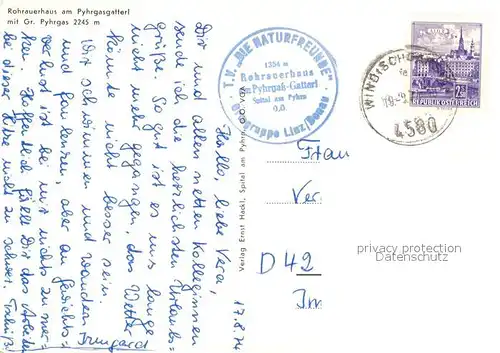 Rohrauerhaus am Pyhrgasgatterl
mit Gr. Pyhrgas 2245 m
T.V. „DIE NATURFREUNDE“
1334 m
Rohrauerhaus
am Pyhrgaß-Gatterl
Spital am Pyhrn
O.Ö.
Ortsgruppe Linz/Donau
WINDISCHGA
4580
REPUBLIK ÖSTERREICH
Verlag Ernst Hackl, Spital am Pyhrn, OÖ
17.8.74
Hallo, liebe Vera,
Dir und allen netten Kolleginnen
sende ich die herzlichsten Urlaubs-
grüße. So gut ist es mir lange
nicht mehr gegangen, das Wetter
könnte nicht besser sein.
Wir schwimmen und wandern
und faulenzen, aber an Gewichts-
verlust ist bei mir nichts zu mer-
ken. Hoffentlich fällt Dir das Arbeiten
bei dieser Hitze nicht zu schwer. Tschüß!
Irmgard
Frau
Ver
D 42
Im
privacy protection
Datenschutz